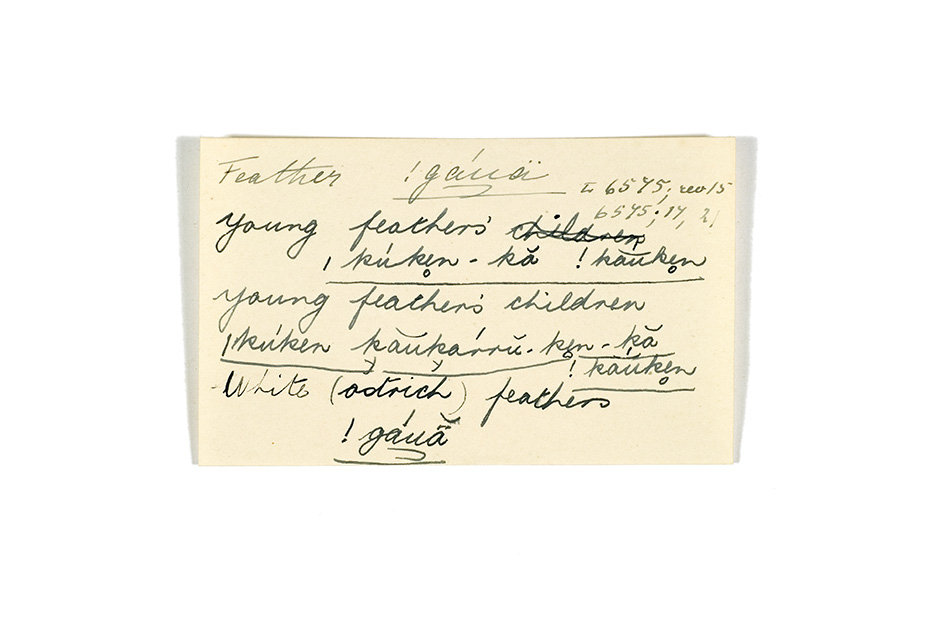 Feather !gáuä L 6575; rev 15
6575; 17, 21
young feather's children
ǀkúken̥ - kă !kāuken̥
young feather's children
ǀkúken kāukárrŭ - ken̥ - kă
!kāúken̥
White (ostrich) feathers
!gáuä̆